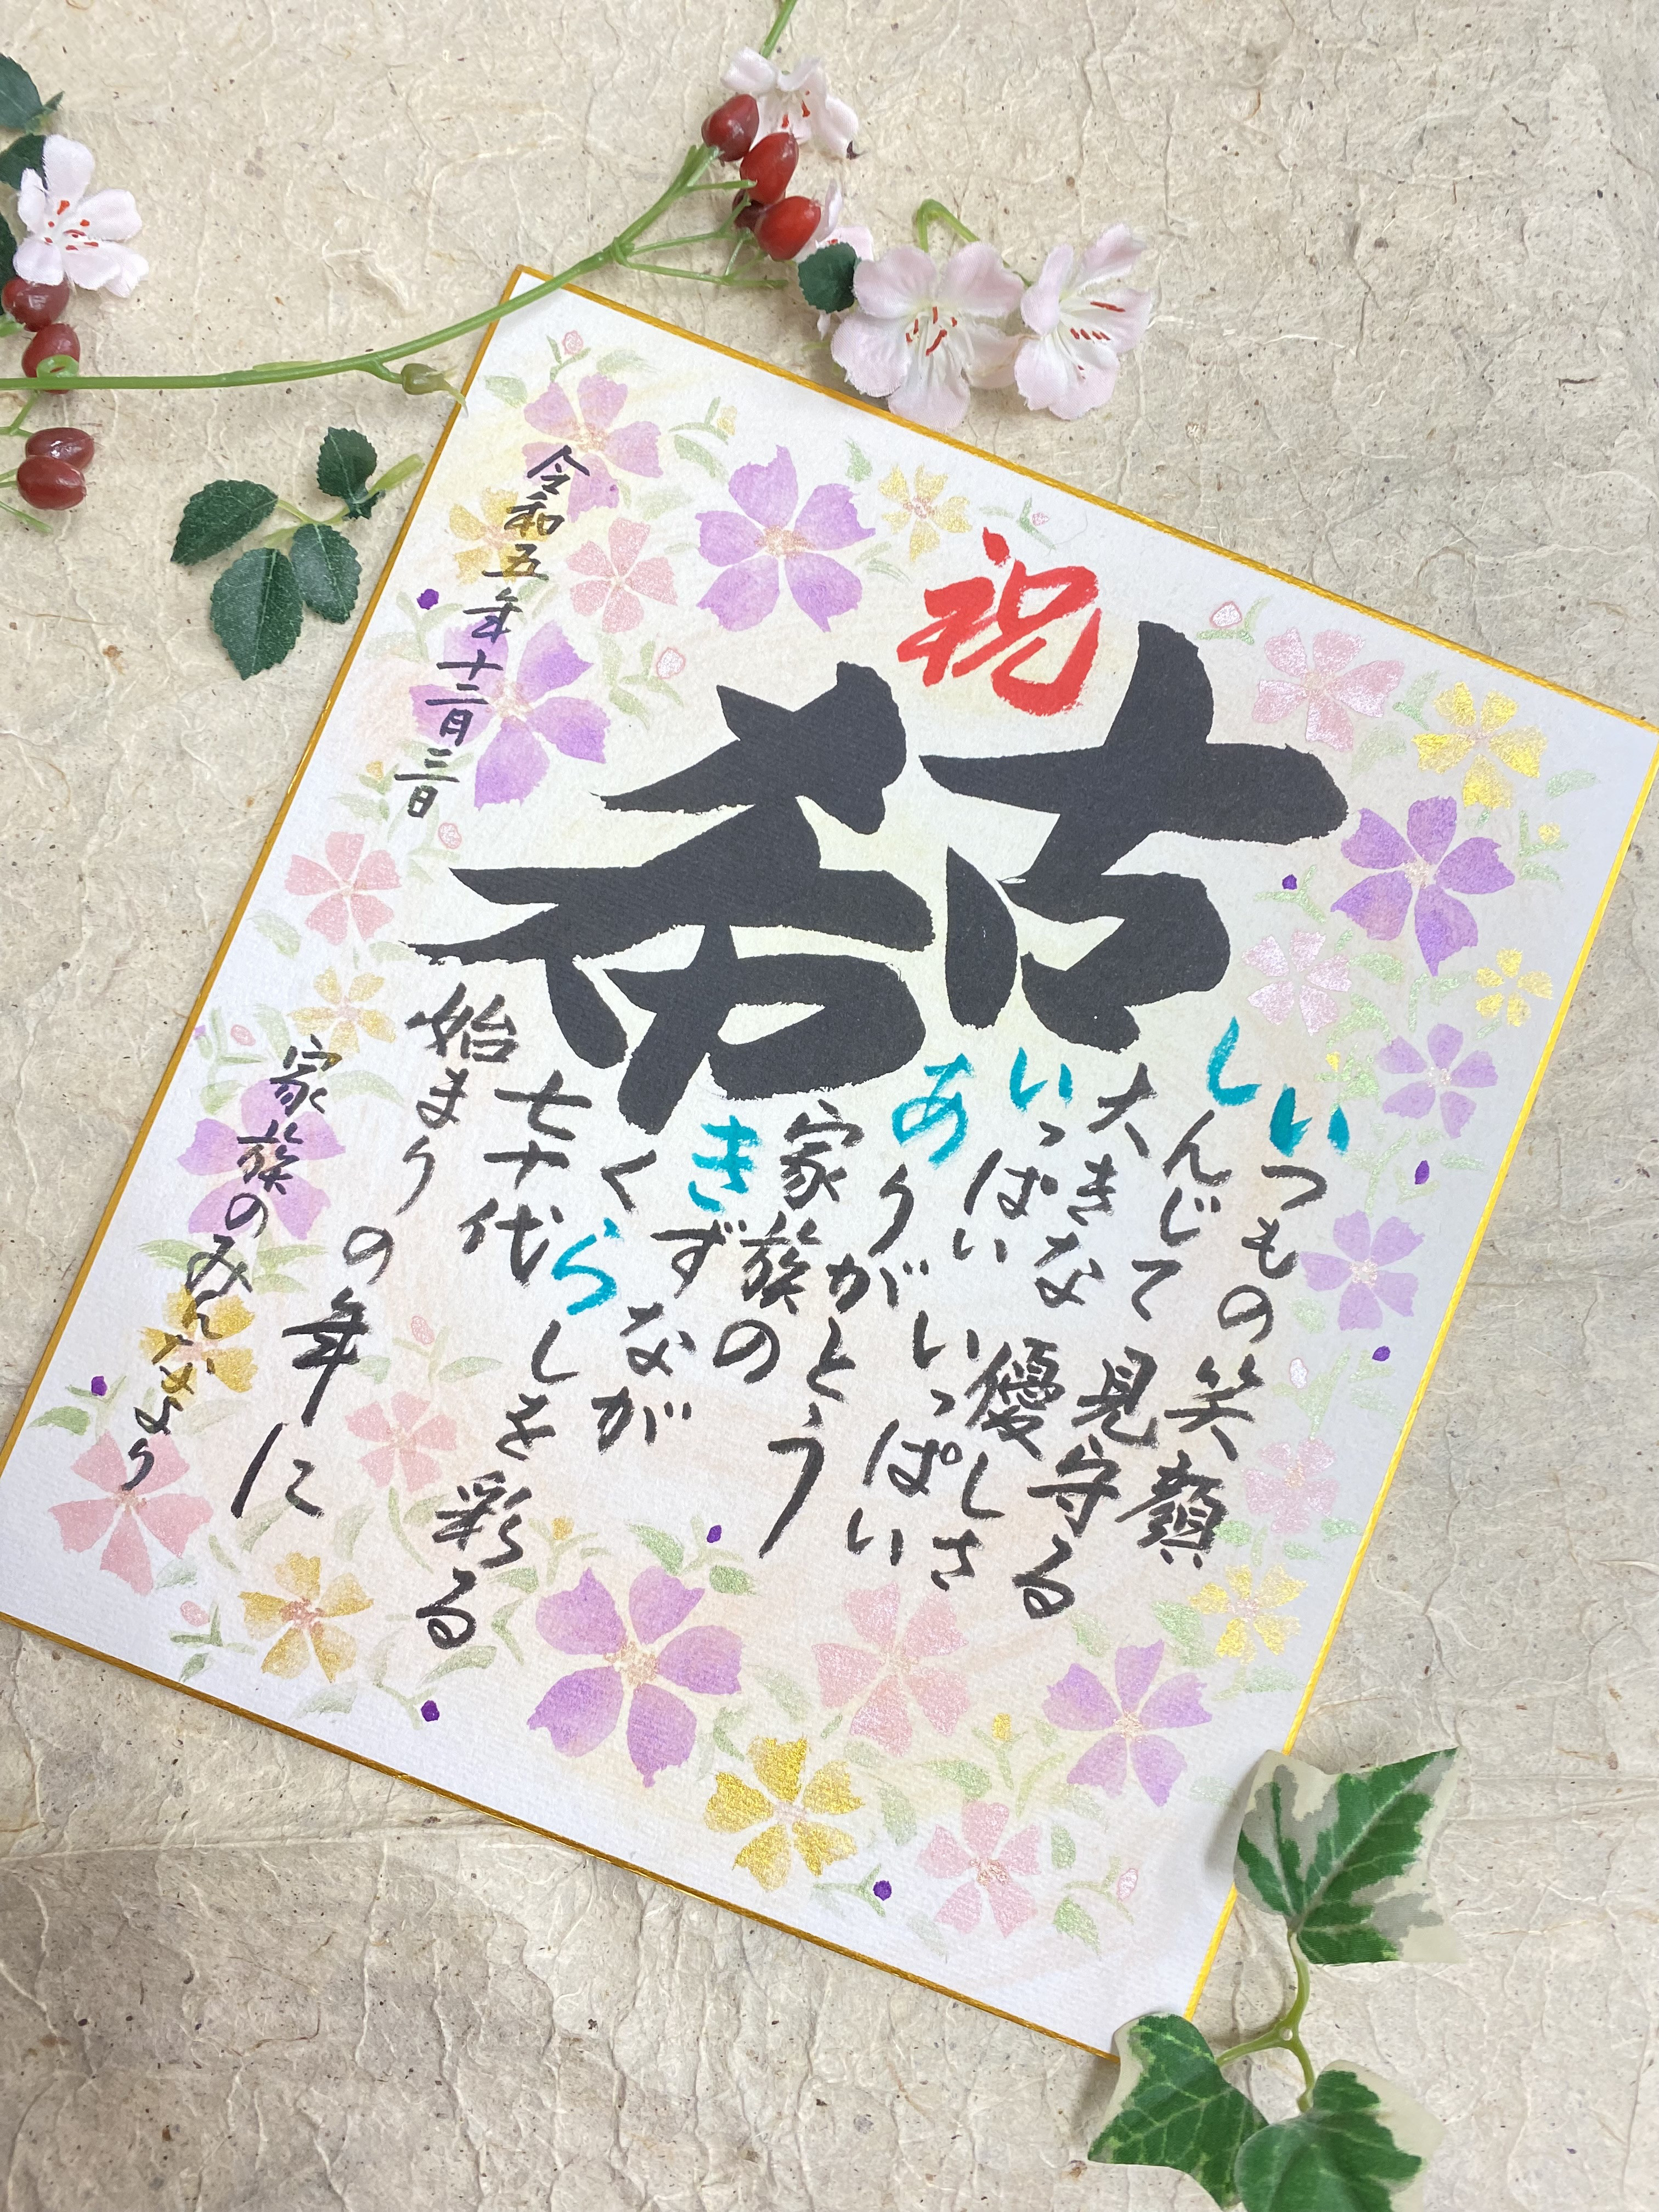 祝
古希
いつもの笑顔
しんじて見守る
大きな優しさ
いっぱいいっぱい
ありがとう
家族の
きずなが
くらしを彩る
七十代
始まりの年に
令和五年十二月三日
家族のみんなより